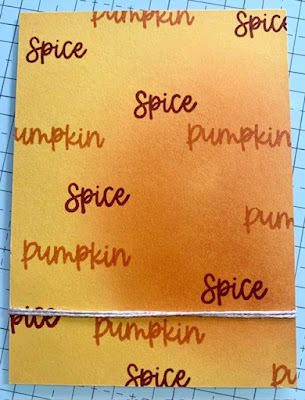 pumpkin
Spice
Spice
Spice
pumpkin
pumpkin
Spice
pum
pumpkin
Spice
pice
pumpkin
pu
Spice